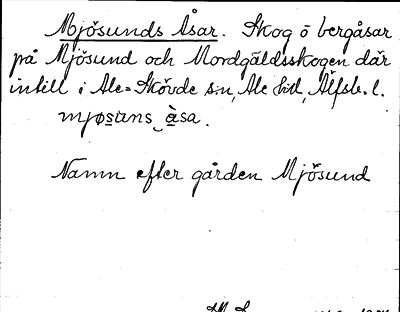 Mjösunds Åsar. Skog ö bergåsar
på Mjösund och Mordgäldsskogen där
intill i Ale-Skövde sn, Ale hd, Älfsb. l.
mjøsuns àsa.
Namn efter gården Mjösund